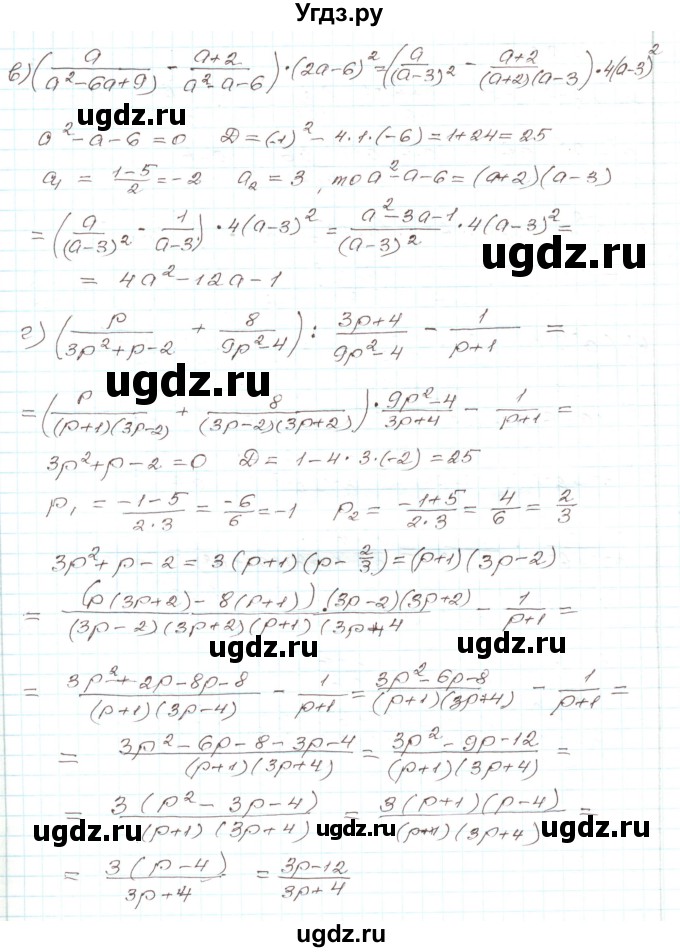 Угдз.ру
в) (a/(a²-6a+9) - (a+2)/(a²-a-6)) · (2a-6)² = (a/(a-3)² - (a+2)/((a+2)(a-3))) · 4(a-3)²
a²-a-6=0 D=(-1)²-4·1·(-6)=1+24=25
a₁ = (1-5)/2 = -2 a₂ = 3, то a²-a-6=(a+2)(a-3)
= (a/(a-3)² - 1/(a-3)) · 4(a-3)² = (a²-3a-1)/(a-3)² · 4(a-3)² =
ugdz.ru
= 4a²-12a-1
г) (p/(3p²+p-2) + 8/(9p²-4)) : (3p+4)/(9p²-4) - 1/(p+1) =
ugdz.ru
= (p/((p+1)(3p-2)) + 8/((3p-2)(3p+2))) · (9p²-4)/(3p+4) - 1/(p+1) =
3p²+p-2=0 D=1-4·3·(-2)=25
p₁ = (-1-5)/(2·3) = -6/6 = -1 p₂ = (-1+5)/(2·3) = 4/6 = 2/3
3p²+p-2 = 3(p+1)(p-2/3) = (p+1)(3p-2)
= (p(3p+2)-8(p+1))·(3p-2)(3p+2)/((3p-2)(3p+2)(p+1)(3p+4 - 1/(p+1) =
ugdz.ru ugdz.ru
= (3p²+2p-8p-8)/((p+1)(3p-4)) - 1/(p+1) = (3p²-6p-8)/((p+1)(3p+4)) - 1/(p+1) =
= (3p²-6p-8-3p-4)/((p+1)(3p+4)) = (3p²-9p-12)/((p+1)(3p+4)) =
= 3(p²-3p-4)/((p+1)(3p+4)) = 3(p+1)(p-4)/((p+1)(3p+4)) =
ugdz.ru ugdz.ru
= 3(p-4)/(3p+4) = (3p-12)/(3p+4)
ugdz.ru